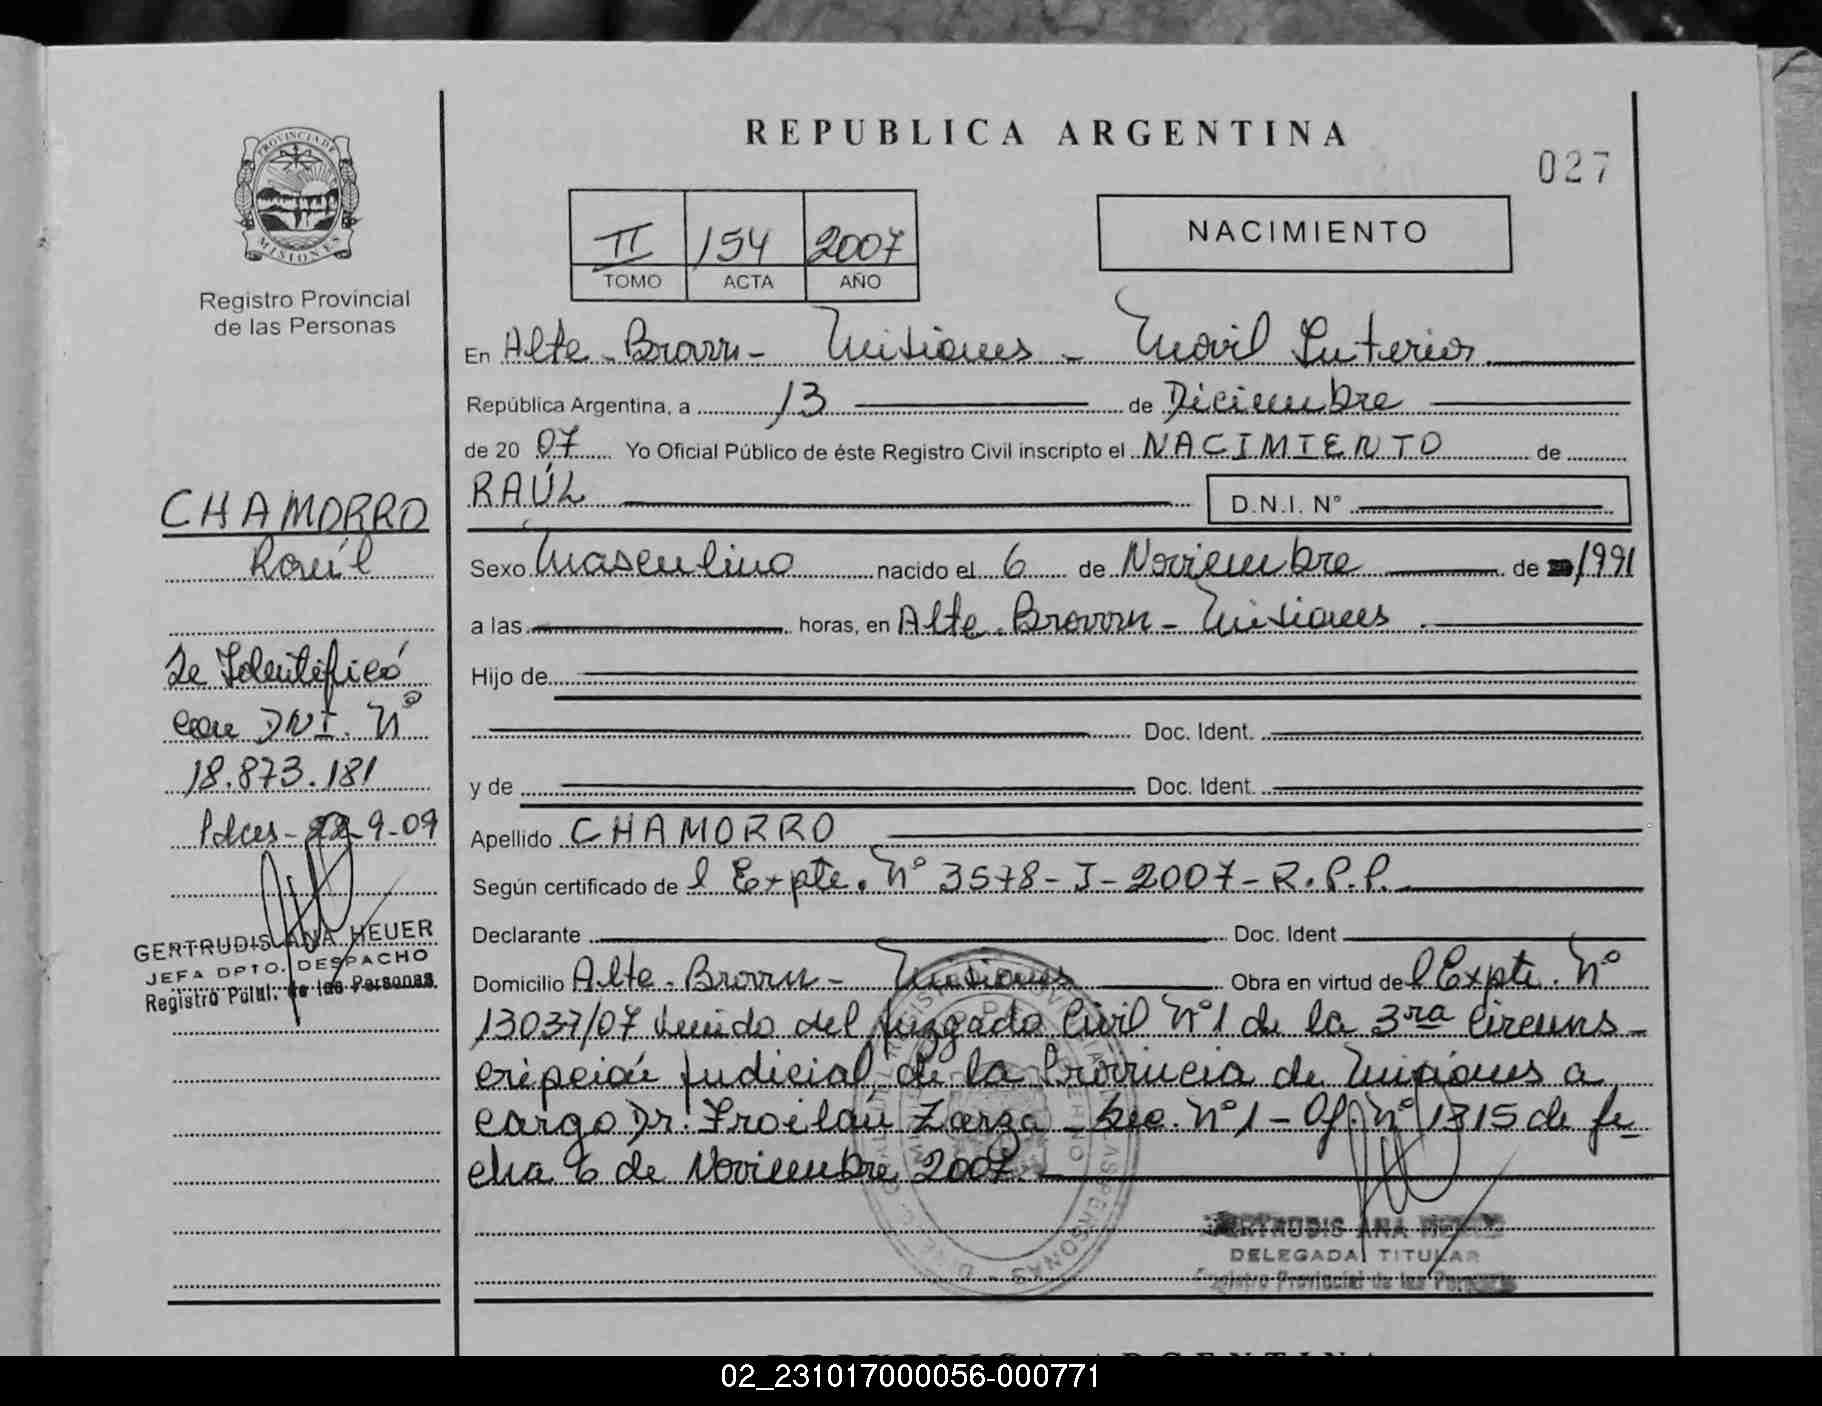 PROVINCIA DE
MISIONES
Registro Provincial
de las Personas
CHAMORRO
Raúl
Se Identificó
con DNI. Nº
18.873.181
Pdas-22-9-09
GERTRUDIS ANA HEUER
JEFA DPTO. DESPACHO
Registro Pcial. de las Personas
REPUBLICA ARGENTINA
027
II 154 2007
TOMO ACTA AÑO
NACIMIENTO
En Alte. Brown - Misiones - Movil Interior
República Argentina, a 13 de Diciembre
de 2007 Yo Oficial Público de éste Registro Civil inscripto el NACIMIENTO de
RAÚL D.N.I. N°
Sexo Masculino nacido el 6 de Noviembre de 1991
a las horas, en Alte. Brown - Misiones
Hijo de
Doc. Ident.
y de Doc. Ident.
Apellido CHAMORRO
Según certificado de l Expte. N° 3578-I-2007-R.P.P.
Declarante Doc. Ident
Domicilio Alte. Brown - Misiones Obra en virtud de l Expte. N°
13037/07 venido del Juzgado Civil N°1 de la 3ra Circuns-
cripción Judicial de la Provincia de Misiones a
cargo Dr. Froilán Zarza - Sec. N°1 - Of. N° 1315 de fe-
cha 6 de Noviembre 2007.
GERTRUDIS ANA HEUER
DELEGADA TITULAR
Registro Provincial de las Personas
02_231017000056-000771